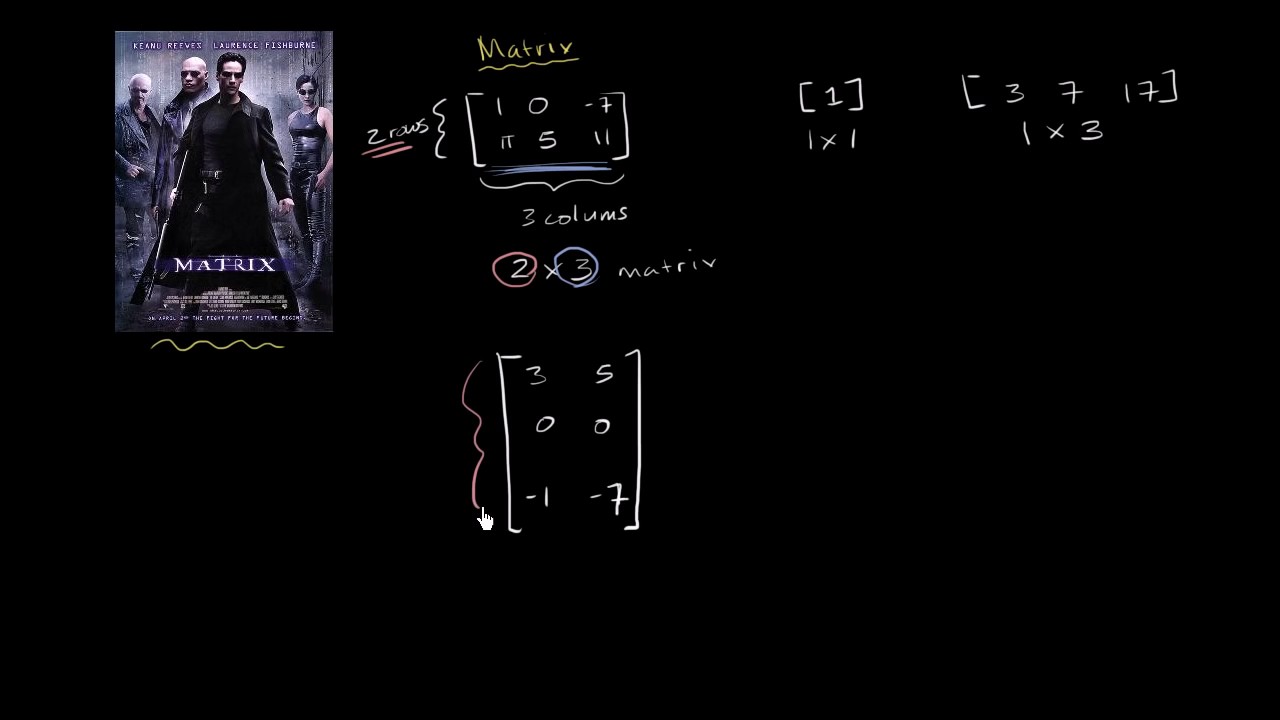 KEANU REEVES LAURENCE FISHBURNE
MATRIX
ON APRIL 2ND THE FIGHT FOR THE FUTURE BEGINS.
Matrix
2 rows
[1 0 -7
π 5 11]
3 colums
2 × 3 matrix
[1]
1×1
[3 7 17]
1 × 3
[3 5
0 0
-1 -7]